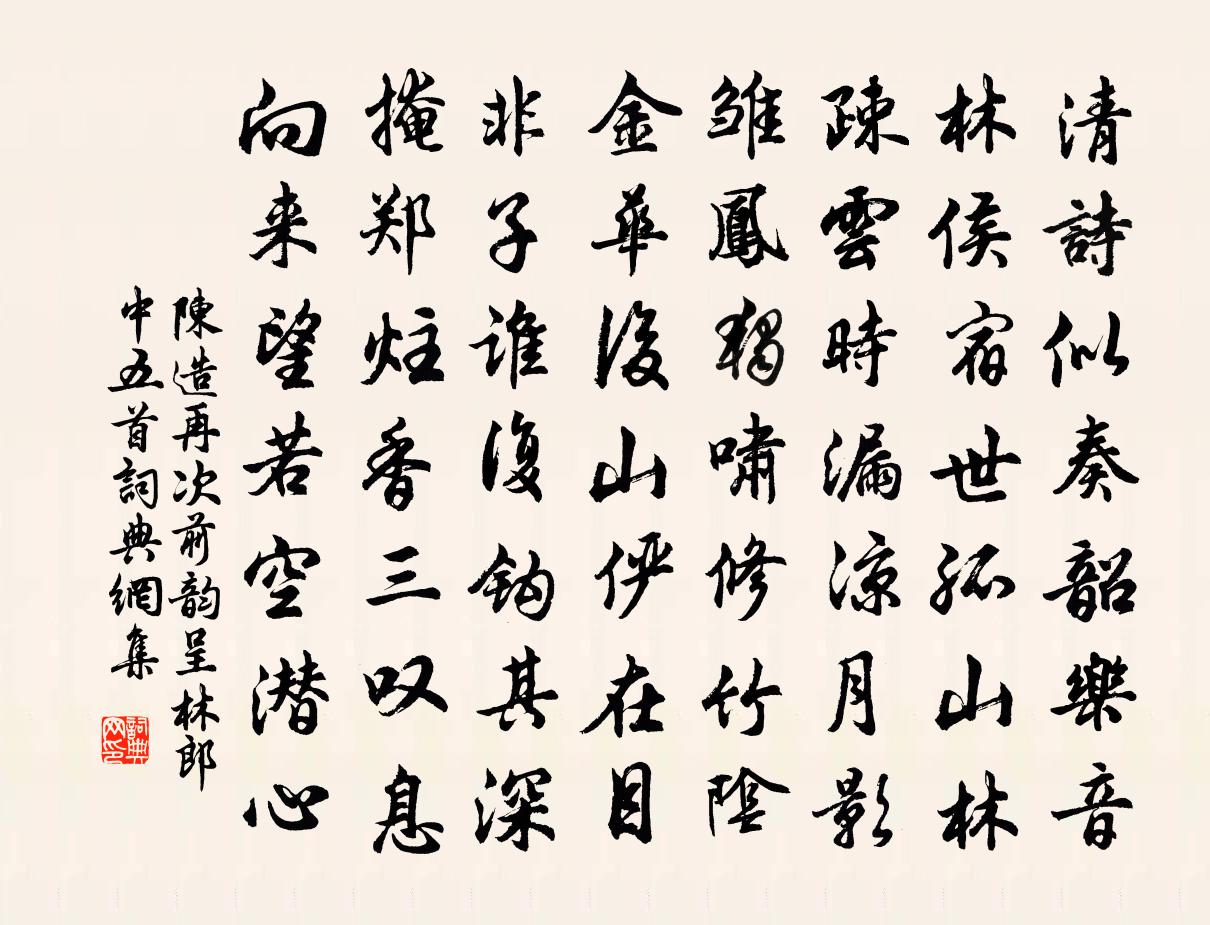 清詩似奏韶樂音
林侯宿世孤山林
疎雲時漏涼月影
雏鳳獨嘯修竹陰
金華後山俨在目
非子谁復鈎其深
掩郑炷香三叹息
向来望若空潜心
陳造再次前韵呈林郎
中五首詞典網集
詞典网印